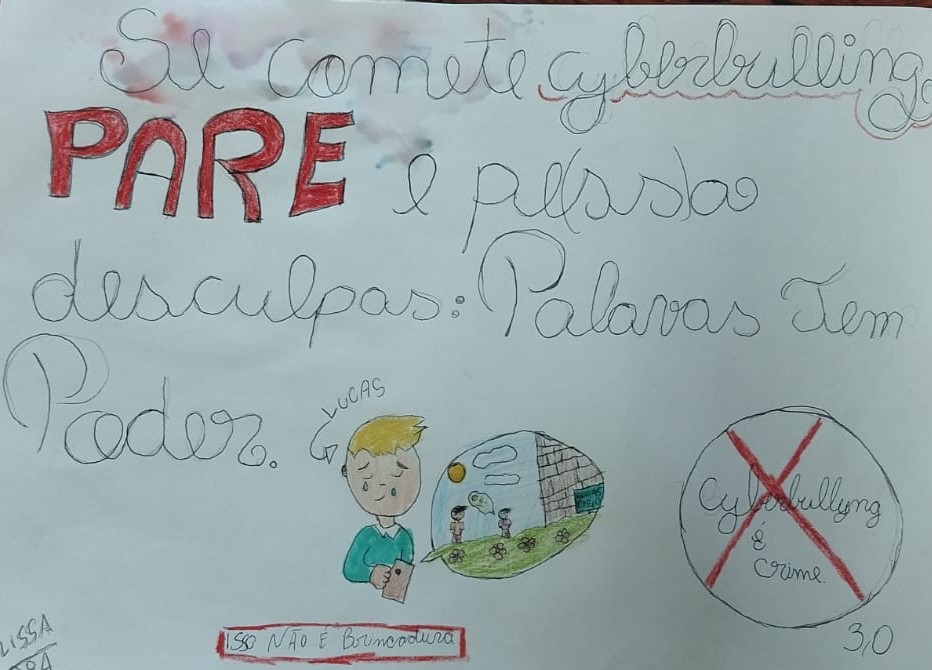 Se comete cyberbulling,
PARE e pe(ssa)
desculpas: Palavas Tem
Poder.
LUCAS
Cyberbullyng
é
crime
ISSO NÃO É Brincadura
3,0
LISSA